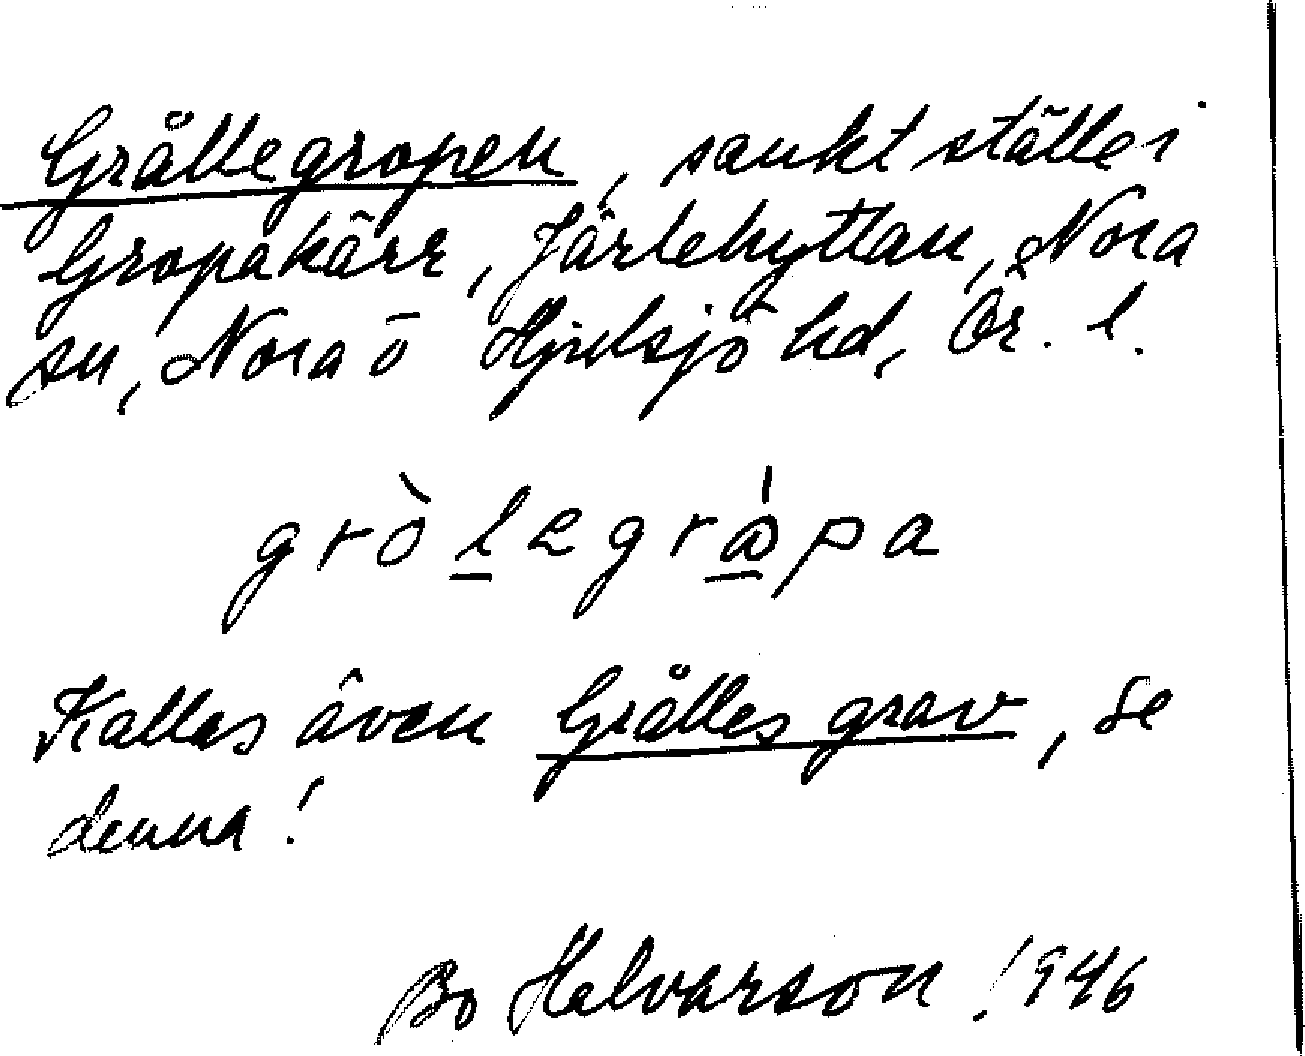 Grållegropen, sankt ställe i
Gropakärr, Järlehyttan, Nora
sn, Nora o Hjulsjö hd, Ör. l.
gròlegrápa
Kallas även Grålles grav, se
denna!
Bo Halvarson 1946